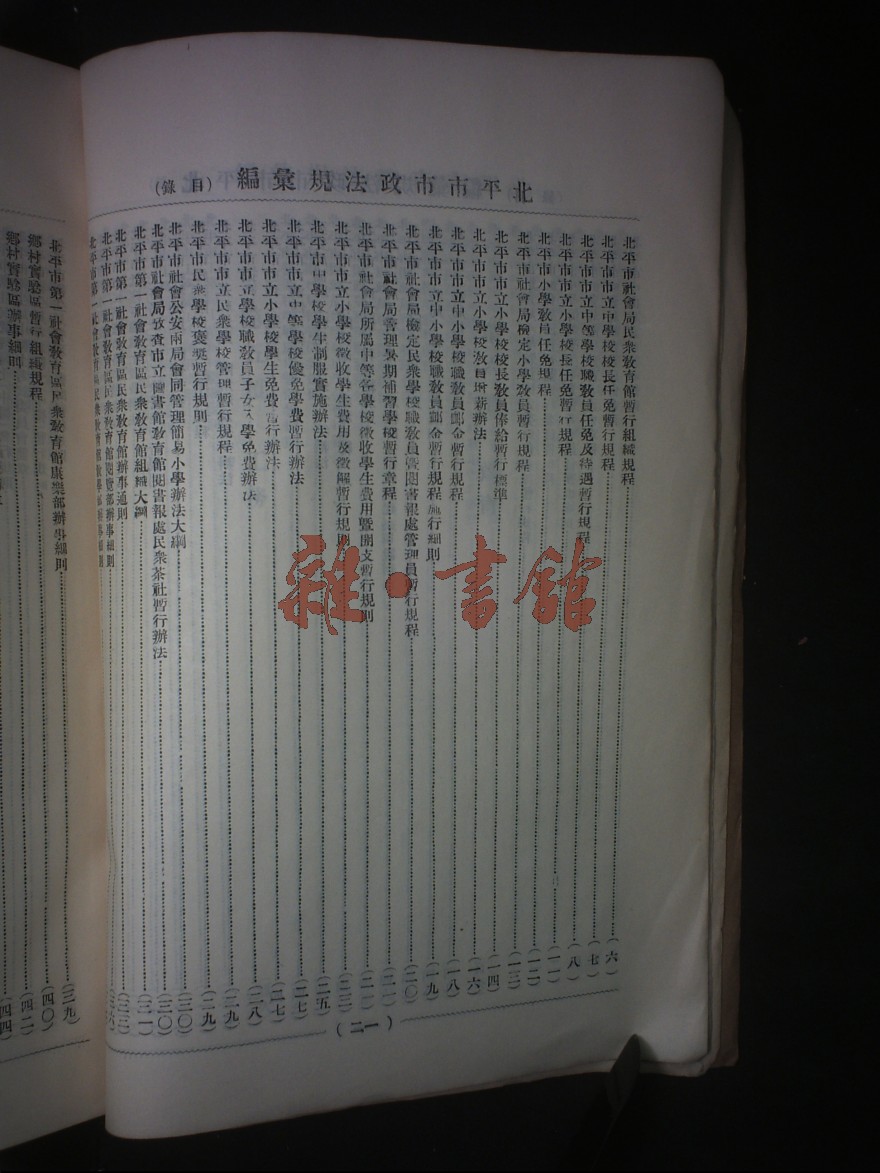 北平市市政法規彙編（目錄）
北平市社會局民衆敎育館暫行組織規程（六）
北平市市立中學校校長任免暫行規程（七）
北平市市立中等學校職敎員任免及待遇暫行規程（八）
北平市市立小學校長任免暫行規程（一一）
北平市小學敎員任免規程（一二）
北平市社會局檢定小學敎員暫行規程（一三）
北平市市立小學校校長敎員俸給暫行標準（一四）
北平市市立小學校敎員增薪辦法（一六）
北平市市立中小學校職敎員卹金暫行規程（一八）
北平市市立中小學校職敎員卹金暫行規程施行細則（一九）
北平市社會局檢定民衆學校職敎員暨閱書報處管理員暫行規程（二〇）
北平市社會局管理暑期補習學校暫行章程（二一）
北平市社會局所屬中等各學校徵收學生費用暨開支暫行規則（二一）
北平市市立小學校徵收學生費用及徵解暫行規則（二三）
北平市中學校學生制服實施辦法（二五）
北平市市立中等學校優免學費暫行辦法（二七）
北平市市立小學校學生免費暫行辦法（二七）
北平市市立學校職敎員子女入學免費辦法（二八）
北平市市立民衆學校管理暫行規程（二九）
北平市民衆學校獎奬暫行規則（二九）
北平市社會公安兩局會同管理簡易小學辦法大綱（三〇）
北平市社會局攷查市立圖書館敎育館閱書報處民衆茶社暫行辦法（三〇）
北平市第一社會敎育區民衆敎育館組織大綱（三一）
北平市第一社會敎育區民衆敎育館辦事通則（三三）
北平市第一社會敎育區民衆敎育館閱覽部辦事細則
北平市第一社會敎育區民衆敎育館敎學部辦事細則（三六）
（一二）
北平市第一社會敎育區民衆敎育館康樂部辦事細則（三九）
鄉村實驗區暫行組織規程（四〇）
鄉村實驗區辦事細則（四二）
（四四）
雜·書館